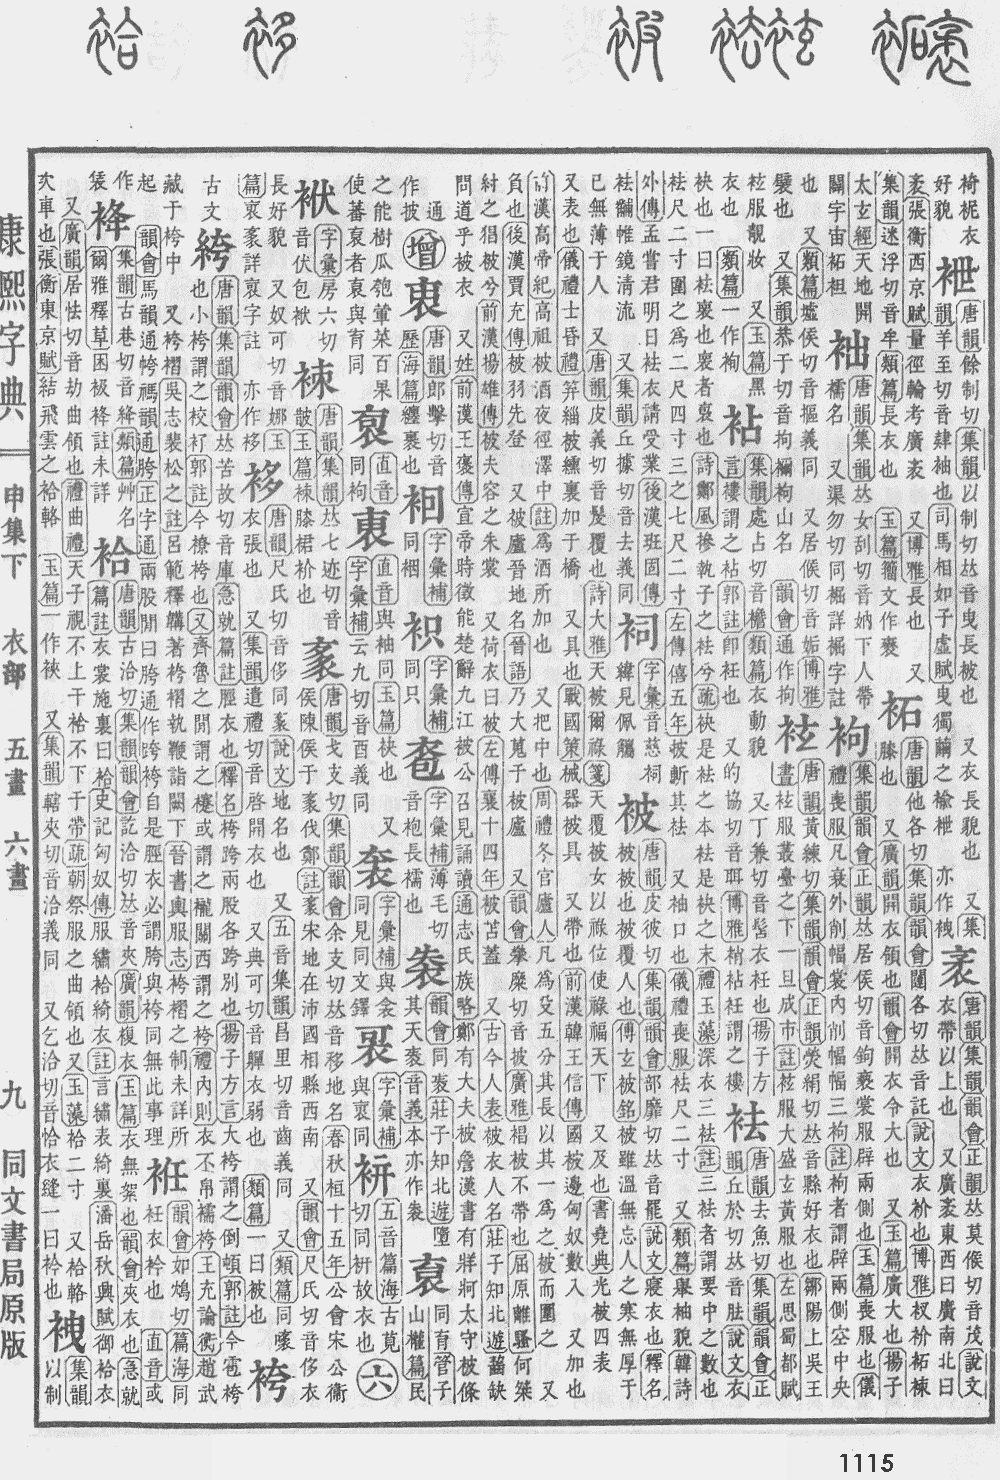 椅柅衣
好貌
袣
唐韻餘制切集韻以制切𠀤音曳長被也 又衣長貌也 又集
韻羊至切音肄袖也司馬相如子虛賦曳獨繭之褕袣 亦作栧
袤
唐韻集韻韻會正韻𠀤莫候切音茂說文
衣帶以上也 又廣袤東西曰廣南北曰
袤張衡西京賦量徑輪考廣袤 又博雅長也 又
集韻迷浮切音牟類篇長衣也 玉篇籀文作
袥
唐韻他各切集韻韻會闥各切𠀤音託說文衣衸也博雅衩衸袥裓
膝也 又廣韻開衣領也韻會開衣令大也 又玉篇廣大也揚子
太玄經天地開
闢宇宙袥袒
袦
唐韻集韻𠀤女刮切音妠下人帶
襦名 又渠勿切同裾詳裾字註
袧
集韻韻會正韻𠀤居侯切音鉤褻裳服辟兩側也玉篇喪服也儀
禮喪服凡衰外削幅裳內削幅幅三袧註袧者謂辟兩側空中央
也 又類篇墟侯切音摳義同 又居候切音姤博雅
襞也 又集韻恭于切音拘襴袧山名 韻會通作拘
袨
唐韻黃練切集韻韻會正韻熒絹切𠀤音縣好衣也鄒陽上吳王
書袨服叢臺之下一旦成市註袨服大盛玄黃服也左思蜀都賦
袨服靚妝 又玉篇黑
衣也 類篇一作袀
袩
集韻處占切音襜類篇衣動貌 又丁兼切音髻衣衽也揚子方
言褸謂之袩郭註卽衽也 又的協切音聑博雅袩衽謂之褸
袪
唐韻去魚切集韻韻會正
韻丘於切𠀤音胠說文衣
袂也一曰袪褱也褱者裒也詩鄭風摻執子之袪兮疏袂是袪之本袪是袂之末禮玉藻深衣三袪註三袪者謂要中之數也
袪尺二寸圍之爲二尺四寸三之七尺二寸左傳僖五年披斬其袪 又袖口也儀禮喪服袪尺二寸 又類篇舉袖貌韓詩
外傳孟嘗君明日袪衣請受業後漢班固傳
袪黼帷鏡清流 又集韻丘據切音去義同
袔
字彙音慈祠
緯見佩觿
被
唐韻皮彼切集韻韻會部靡切𠀤音罷說文寢衣也釋名
被也被覆人也傅玄被銘被雖溫無忘人之寒無厚于
己無薄于人 又唐韻皮義切音髲覆也詩大雅天被爾祿箋天覆被女以祿位使祿福天下 又及也書堯典光被四表
又表也儀禮士昏禮笄緇被纁裏加于橋 又具也戰國策械器被具 又帶也前漢韓王信傳國被邊匈奴數入 又加也
前漢高帝紀高祖被酒夜徑澤中註爲酒所加也 又把中也周禮冬官廬人凡爲殳五分其長以其一爲之被而圍之 又
負也後漢賈充傳被羽先登 又被廬晉地名晉語乃大蒐于被廬 又韻會攀糜切音披廣雅裮被不帶也屈原離騷何桀
紂之猖被兮前漢揚雄傳被夫容之朱裳 又荷衣曰被左傳襄十四年被苫蓋 又古今人表被衣人名莊子知北遊齧缺
問道乎被衣 又姓前漢王褒傳宣帝時徵能楚辭九江被公召見誦讀通志氏族略鄭有大夫被詹漢書有牂牁太守被條
通
作披
增
唐韻郎擊切音
歷海篇纏裹也
袇
字彙補
同裀
袘
字彙補
同只
袌
字彙補薄毛切
音袍長襦也
裻
韻會同裻莊子知北遊墮
其天裻音義本亦作袠
𧙥
同育管子
山權篇民
之能樹瓜瓠葷菜百果
使蕃𧙥者𧙥與育同
直音
同袧
直音與袖同玉篇袂也 又
字彙補云九切音酉義同
字彙補與衾
同見同文鐸
字彙補
與衷同
𧙧
五音篇海古莧
切同衻故衣也
六
袱
字彙房六切
音伏包袱
𧙕
唐韻集韻𠀤七迹切音
皵玉篇𧙕膝裙衸也
𧙞
唐韻弋支切集韻韻會余支切𠀤音移地名春秋桓十五年公會宋公衞
侯陳侯于袲伐鄭註袲宋地在沛國相縣西南 又韻會尺氏切音侈衣
長好貌 又奴可切音娜玉
篇裒袲詳裒字註 亦作袳
袳
唐韻尺氏切音侈同袲說文地名也 又五音集韻昌里切音齒義同 又類篇同㗬
衣張也 又集韻遣禮切音啓開衣也 又典可切音嚲衣弱也 類篇一曰被也
袴
古文
絝
唐韻集韻韻會𠀤苦故切音庫急就篇註脛衣也釋名袴跨兩股各跨別也揚子方言大袴謂之倒頓郭註今雹袴
也小袴謂之校衧郭註今橑袴也又齊魯之閒謂之襱或謂之襱關西謂之袴禮內則衣不帛襦袴王充論衡趙武
藏于袴中 又袴褶吳志裴松之註呂範釋褠著袴褶執鞭詣闕下晉書輿服志袴褶之制未詳所
起 韻會馬韻通㡁禡韻通胯正字通兩股閒曰胯通作跨袴自是脛衣必謂胯與袴同無此事理
袵
韻會如鴆切篇海同
衽衣衿也 直音或
作
袶
集韻古巷切音絳類篇艸名
爾雅釋草困衱袶註未詳
袷
唐韻古洽切集韻韻會訖洽切𠀤音夾廣韻複衣玉篇衣無絮也韻會夾衣也急就
篇註衣裳施裏曰袷史記匈奴傳服繡袷綺衣註言繡表綺裏潘岳秋興賦御袷衣
又廣韻居怯切音劫曲領也禮曲禮天子視不上于袷不下于帶疏朝祭服之曲領也又玉藻袷二寸 又袷輅
次車也張衡東京賦結飛雲之袷輅 玉篇一作裌 又集韻轄夾切音洽義同 又乞洽切音恰衣縫一曰衿也
袣
集韻
以制
康熙字典
申集下 衣部 五畫 六畫
九 同文書局原版
1115